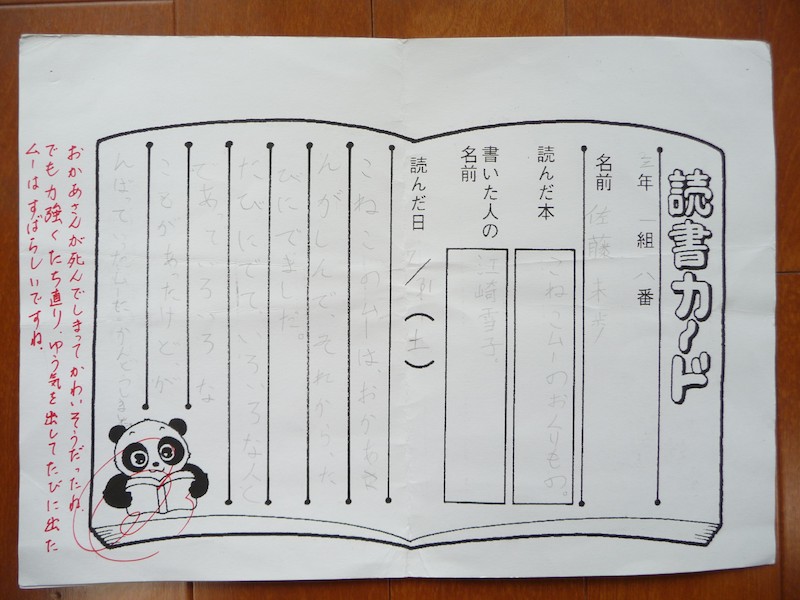 読書カード
三年 一組 八番
名前 佐藤未歩
読んだ本 こねこムーのおくりもの。
書いた人の名前 江崎雪子。
読んだ日 / (土)
こねこのムーは、おかあさ
んがしんで、それから、た
びにでました。
たびにでて、いろいろな人と
であっていろいろな
ことがあったけど、が
んばっていたムーに、かんどうしました
おかあさんが死んでしまってかわいそうだったね。
でも力強くたち直り、ゆう気を出してたびに出た
ムーはすばらしいですね。